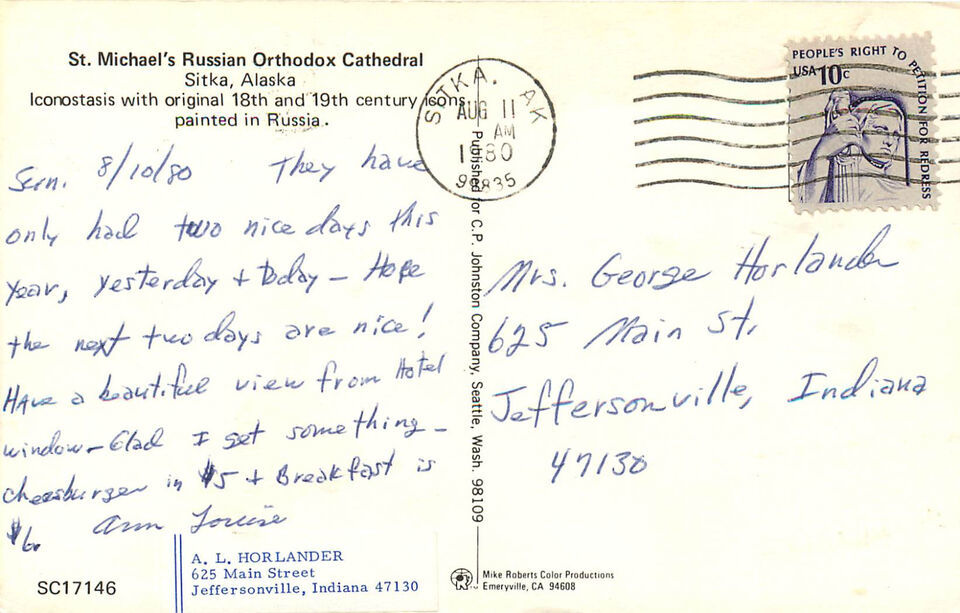 St. Michael's Russian Orthodox Cathedral
Sitka, Alaska
Iconostasis with original 18th and 19th century icons
painted in Russia.
Sun. 8/10/80 They have
only had two nice days this
year, yesterday + today - Hope
the next two days are nice!
Have a beautiful view from Hotel
window - Glad I get something -
cheesburger in $5 + Breakfast is
$6 Ann Louise
A. L. HORLANDER
625 Main Street
Jeffersonville, Indiana 47130
SC17146
SITKA, AK
AUG 11
AM
1980
99835
Published for C.P. Johnston Company, Seattle, Wash. 98109
PEOPLE'S RIGHT TO PETITION FOR REDRESS
USA 10c
Mrs. George Horlander
625 Main St.
Jeffersonville, Indiana
47130
Mike Roberts Color Productions
Emeryville, CA 94608